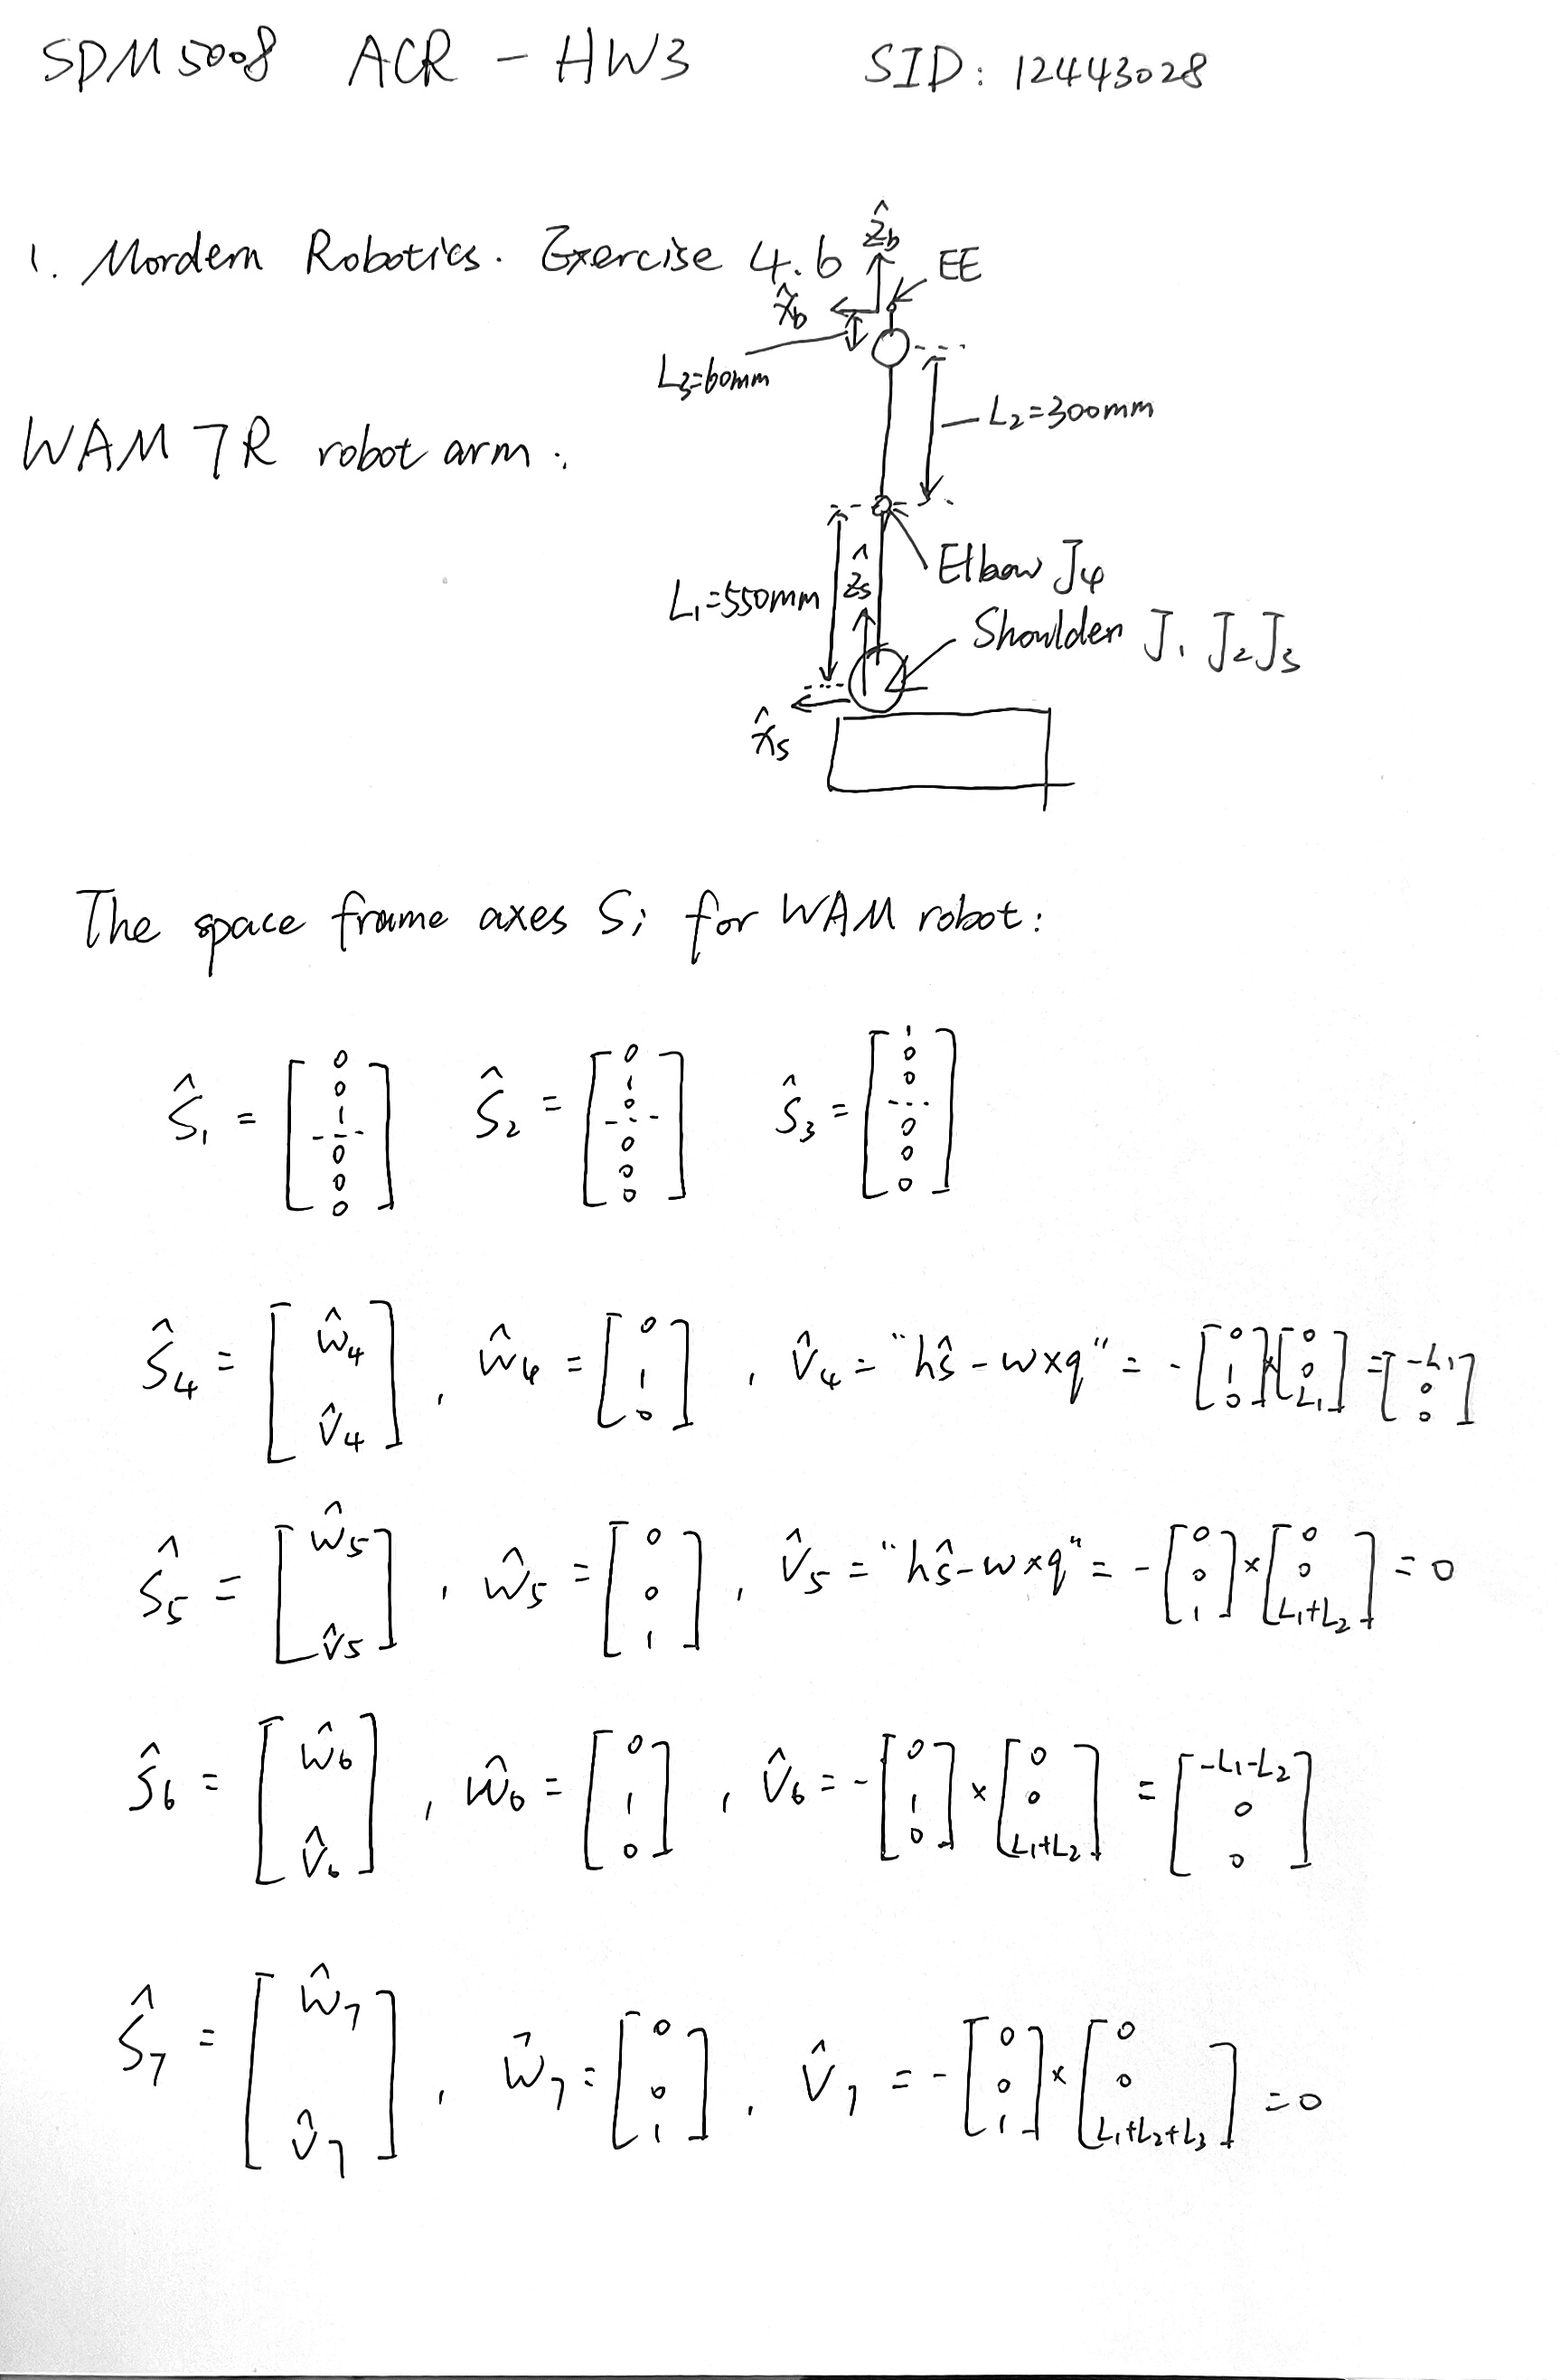 SDM5008 ACR - HW3 SID: 12443028
1. Mordern Robotics. Exercise 4.6
ẑb
EE
x̂b
L3=60mm
L2=300mm
WAM 7R robot arm:
Elbow J4
L1=550mm
ẑs
Shoulder J1 J2 J3
x̂s
The space frame axes Si for WAM robot:
Ŝ1 = [0 0 1 0 0 0] Ŝ2 = [0 1 0 0 0 0] Ŝ3 = [1 0 0 0 0 0]
Ŝ4 = [ŵ4 v̂4], ŵ4 = [0 1 0], v̂4 = "hŝ - w×q" = -[0 1 0]×[0 0 L1] = [-L1 0 0]
Ŝ5 = [ŵ5 v̂5], ŵ5 = [0 0 1], v̂5 = "hŝ-w×q" = -[0 0 1]×[0 0 L1+L2] = 0
Ŝ6 = [ŵ6 v̂6], ŵ6 = [0 1 0], v̂6 = -[0 1 0]×[0 0 L1+L2] = [-L1-L2 0 0]
Ŝ7 = [ŵ7 v̂7], ŵ7 = [0 0 1], v̂7 = -[0 0 1]×[0 0 L1+L2+L3] = 0